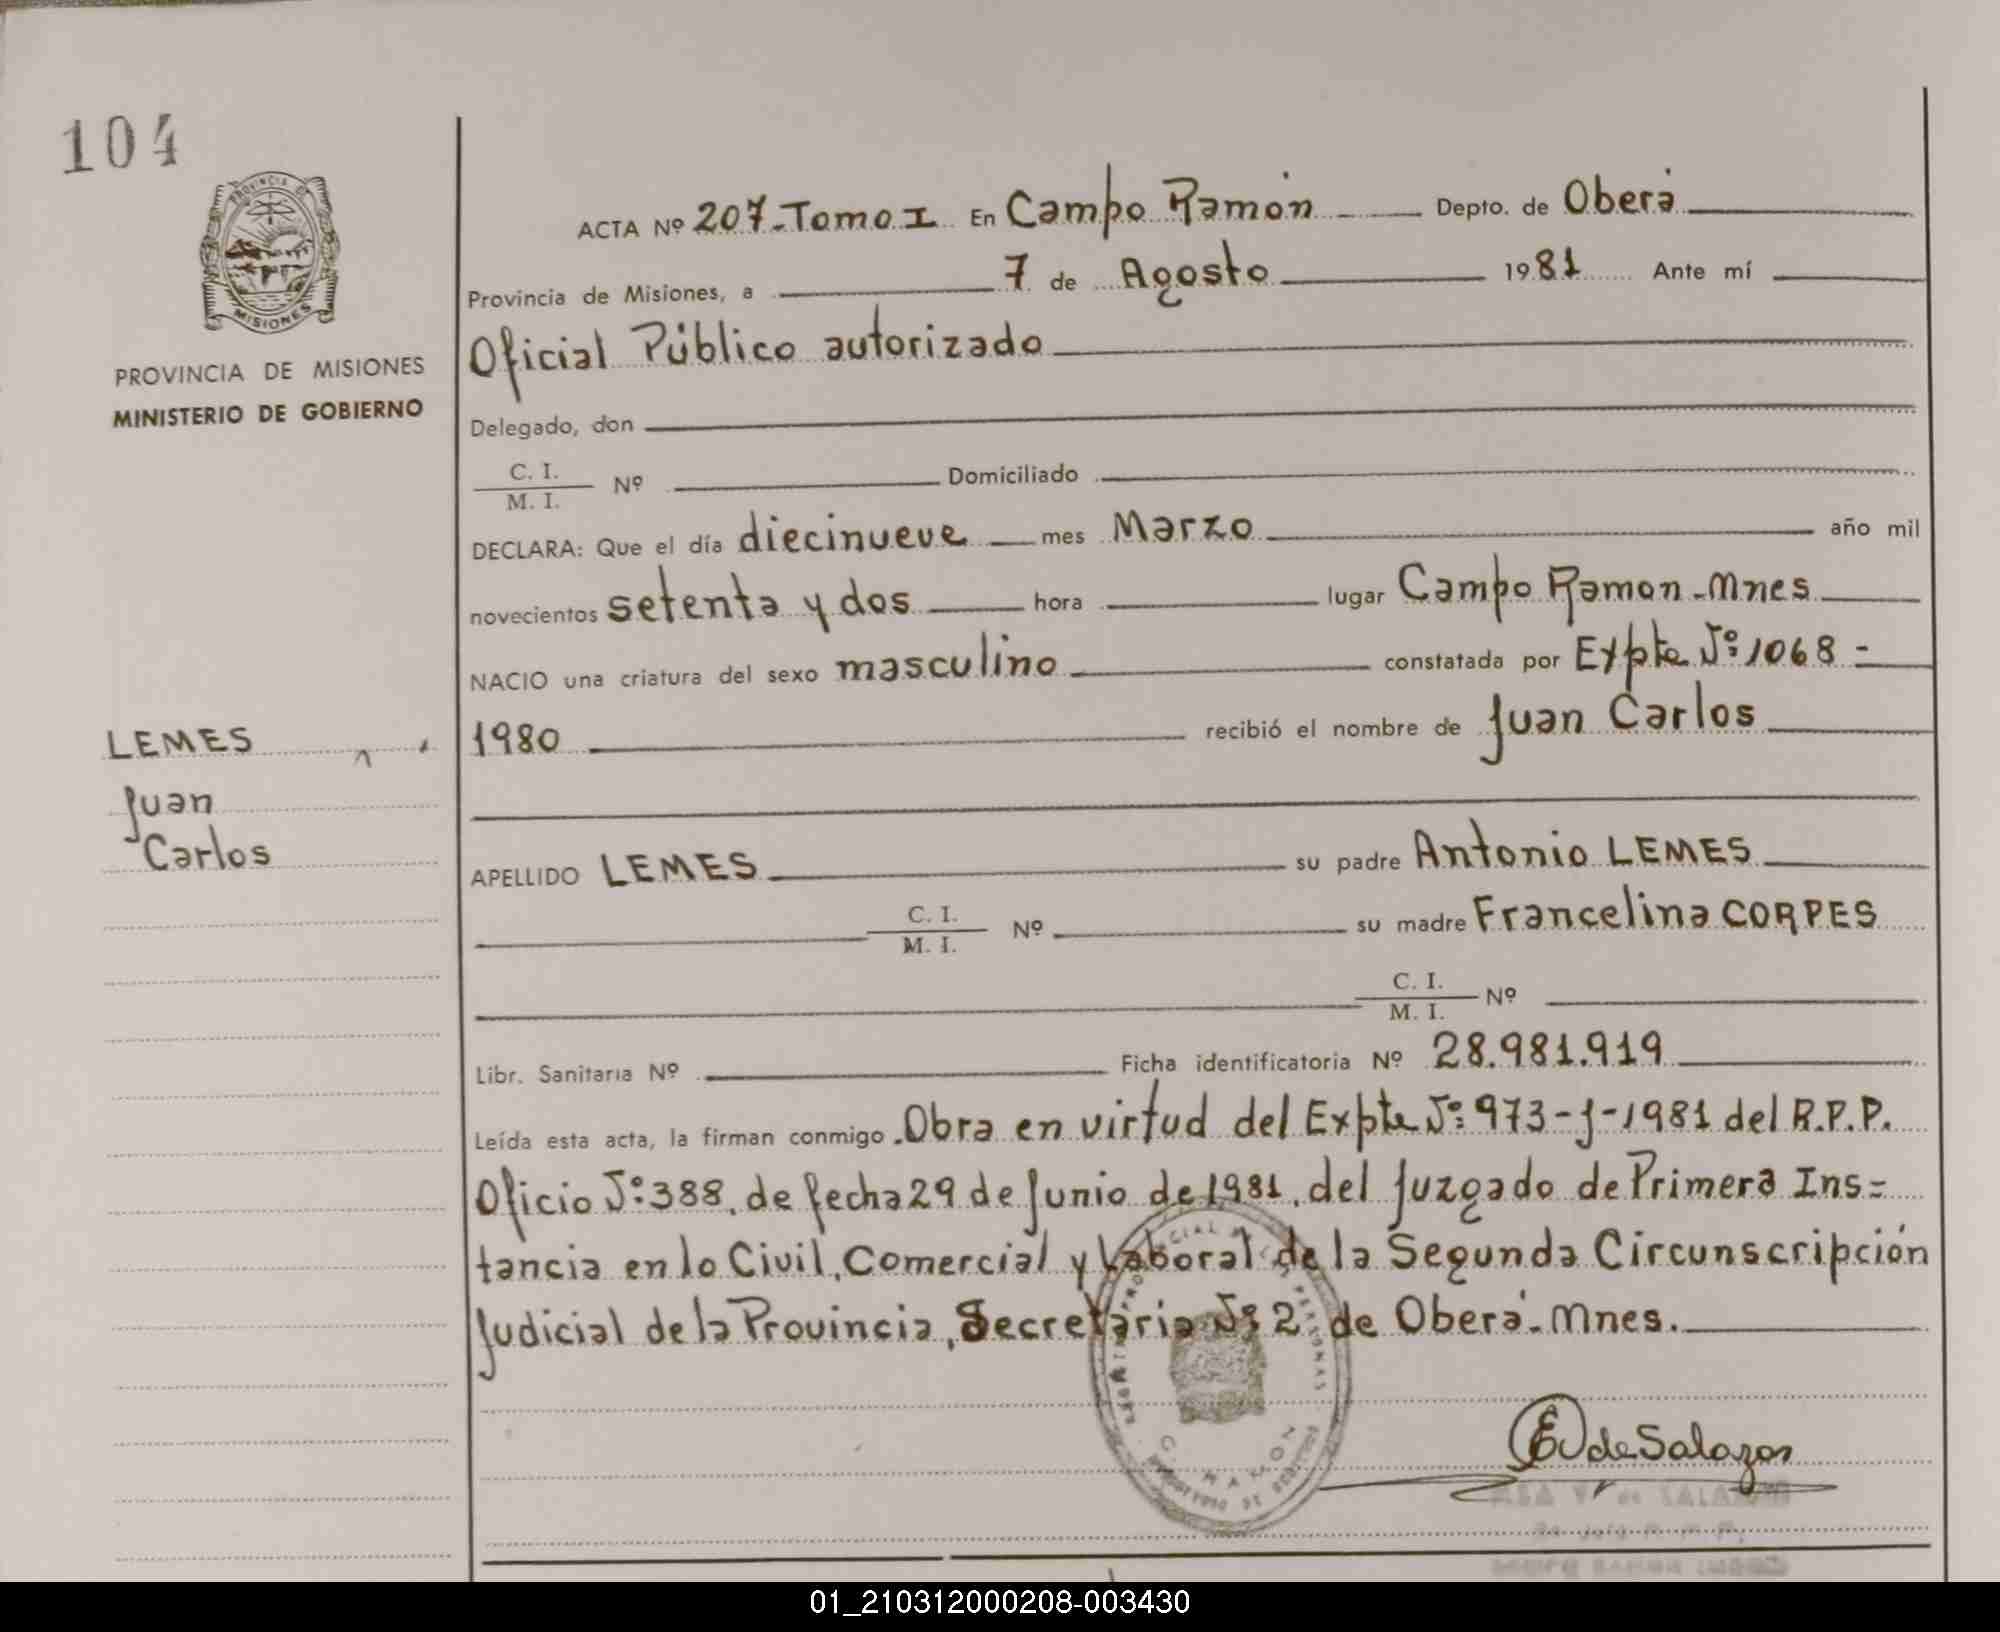 104
PROVINCIA DE
MISIONES
PROVINCIA DE MISIONES
MINISTERIO DE GOBIERNO
LEMES
Juan
Carlos
ACTA Nº 207-Tomo I En Campo Ramón Depto. de Oberá
Provincia de Misiones, a 7 de Agosto 1981 Ante mí
Oficial Público autorizado
Delegado, don
C. I.
M. I. Nº Domiciliado
DECLARA: Que el día diecinueve mes Marzo año mil
novecientos setenta y dos hora lugar Campo Ramon-Mnes
NACIO una criatura del sexo masculino constatada por Expte Nº 1068-
1980 recibió el nombre de Juan Carlos
APELLIDO LEMES su padre Antonio LEMES
C. I.
M. I. Nº su madre Francelina CORPES
C. I.
M. I. Nº
Libr. Sanitaria Nº Ficha identificatoria Nº 28.981.919
Leída esta acta, la firman conmigo. Obra en virtud del Expte Nº 973-J-1981 del R.P.P.
Oficio Nº 388, de fecha 29 de Junio de 1981, del Juzgado de Primera Ins=
tancia en lo Civil, Comercial y Laboral de la Segunda Circunscripción
Judicial de la Provincia, Secretaria Nº 2 de Oberá-Mnes.
PERSONAS
RAMON
de Salazar
V. de SALAZAR
01_210312000208-003430